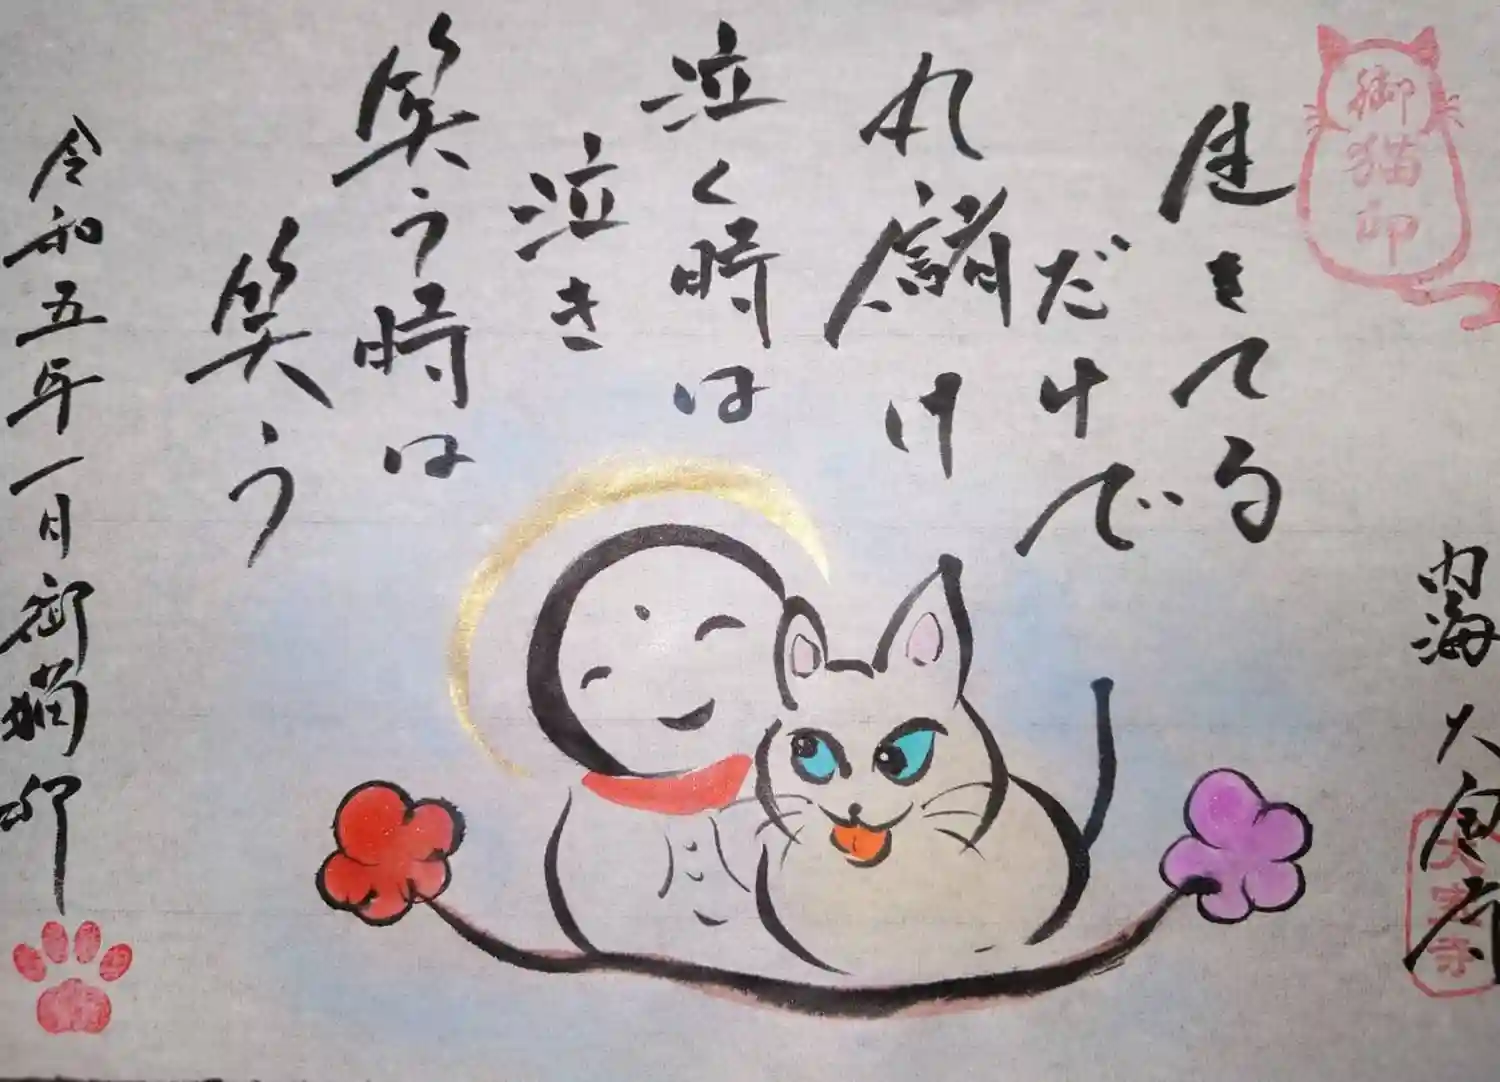 御猫印
内海
生きてる
だけで
丸儲け
泣く時は
泣き
笑う時は
笑う
令和五年一月御猫印